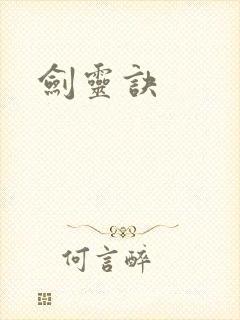 劍靈訣
何言醉